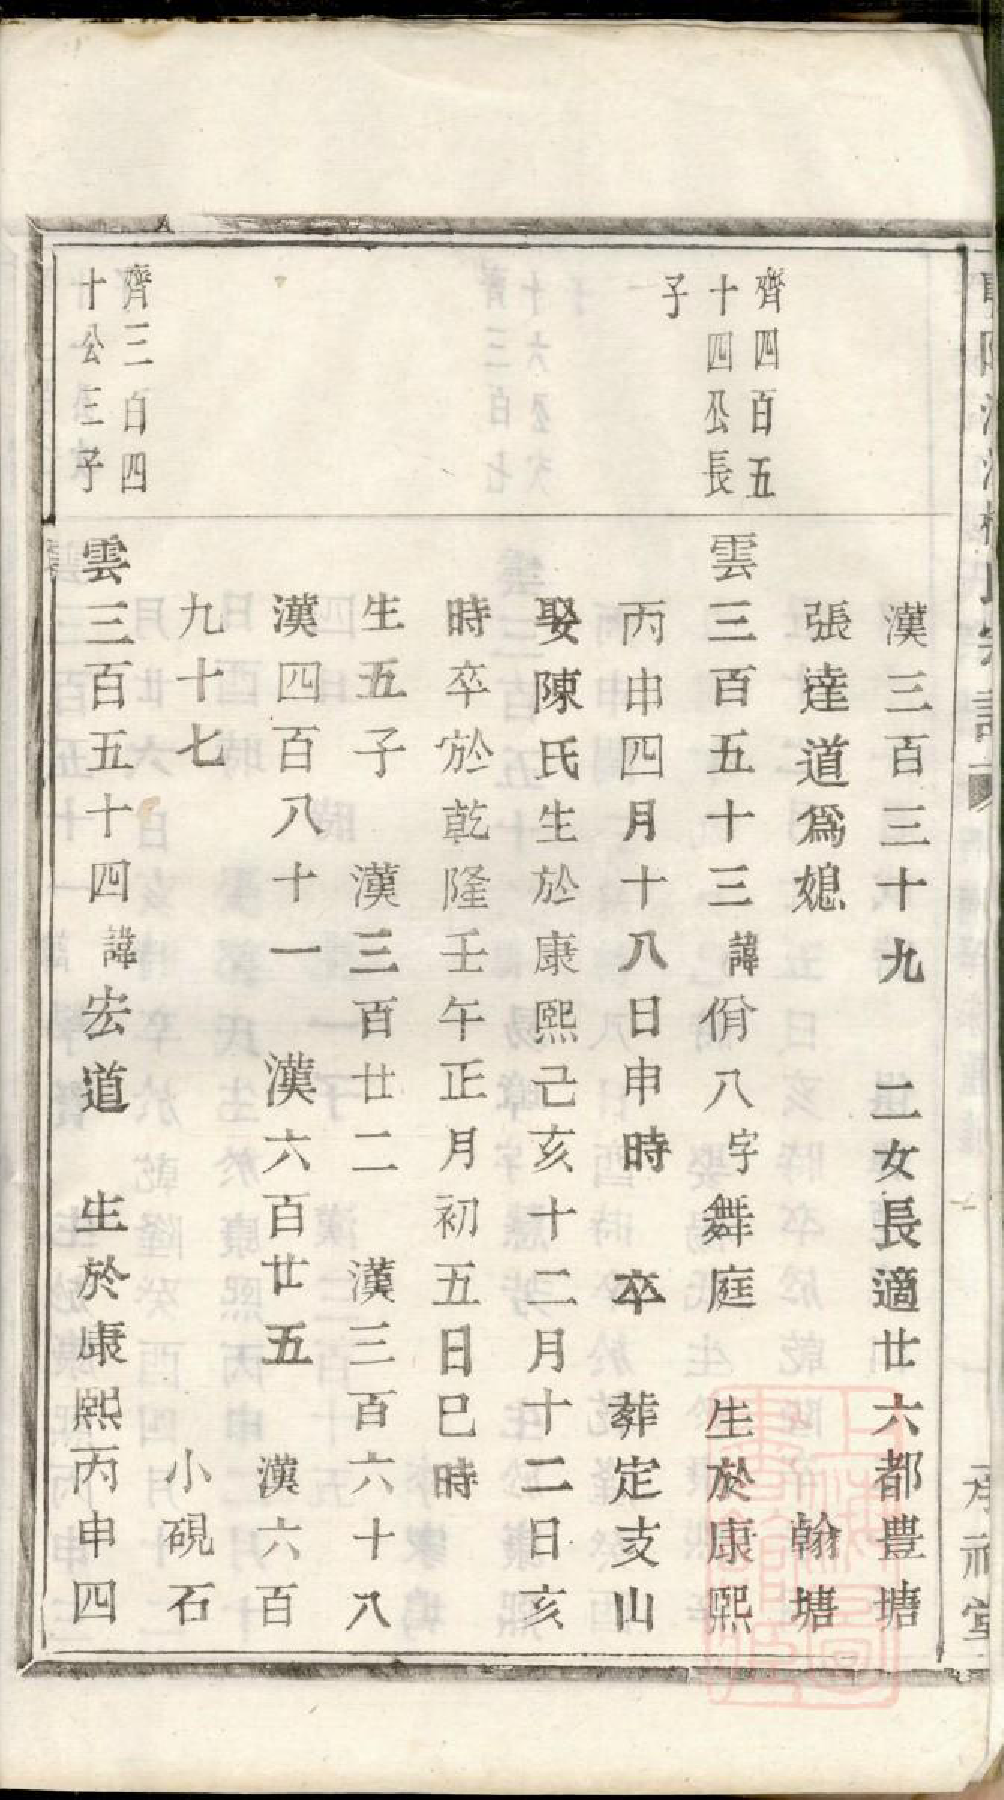 漢三百三十九　二女長適廿六都豊塘
張達道為媳　翰塘
齊四百五
十四公長
子
雲三百五十三諱佾八字舞庭　生於康熙
丙申四月十八日申時　卒　葬定支山
娶陳氏生於康熙己亥十二月十二日亥
時卒於乾隆壬午正月初五日巳時
生五子　漢三百廿二　漢三百六十八
漢四百八十一　漢六百廿五　漢六百
九十七　小硯石
齊三百四
十公三子
雲三百五十四諱宏道　生於康熙丙申四